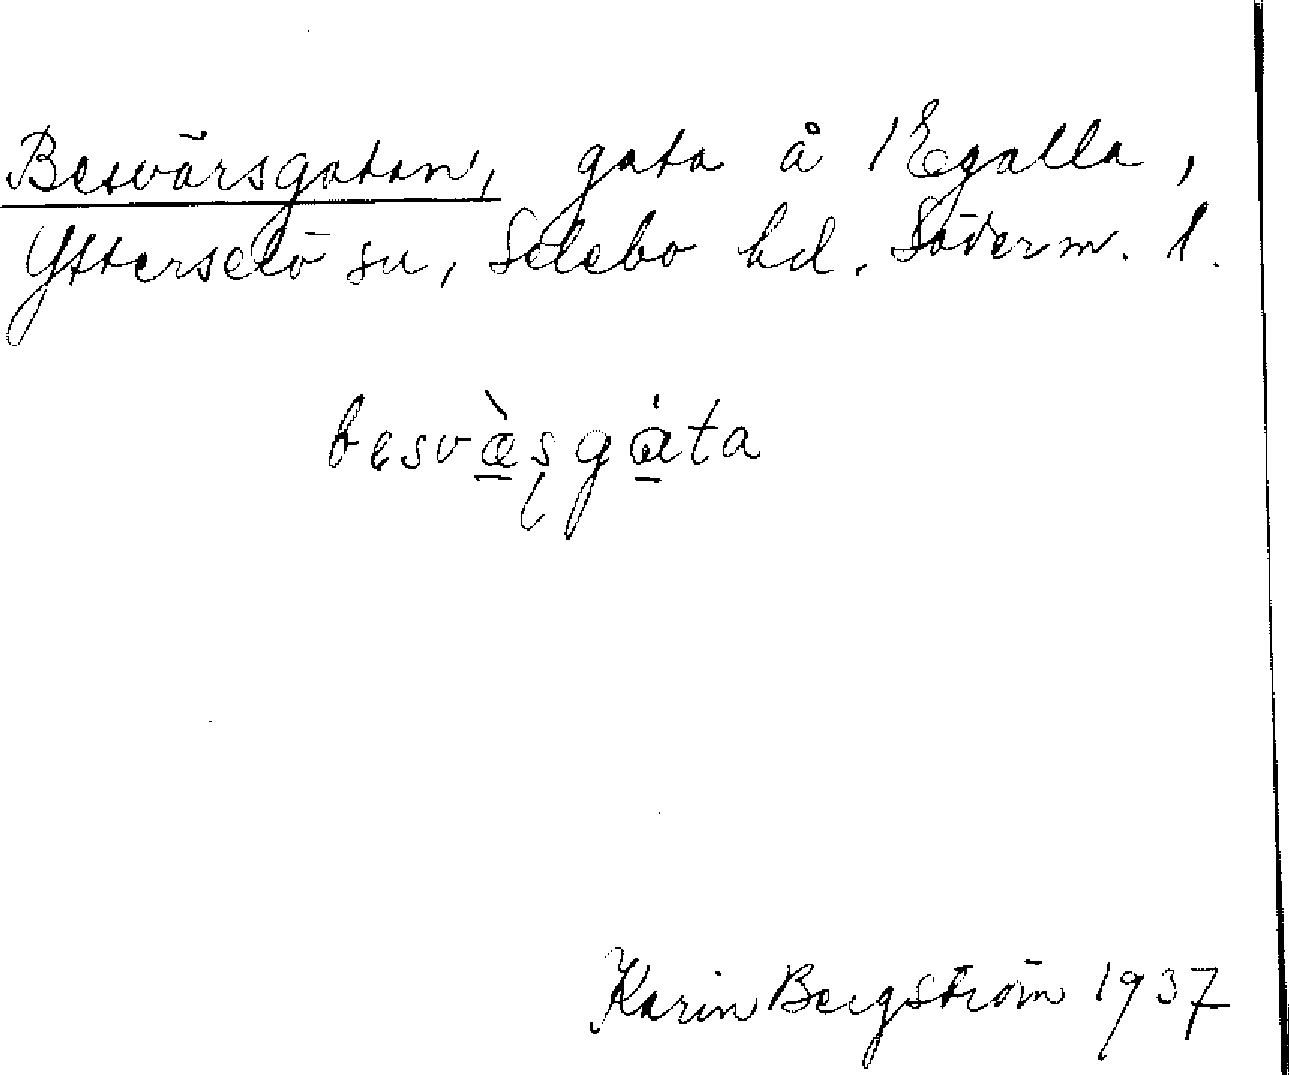 Besvärsgatan, gata å 1 Egalla,
Ytterselö sn, Selebo hd. Söderm. l.
besvæ̀ṣgȧta
Karin Bergström 1937